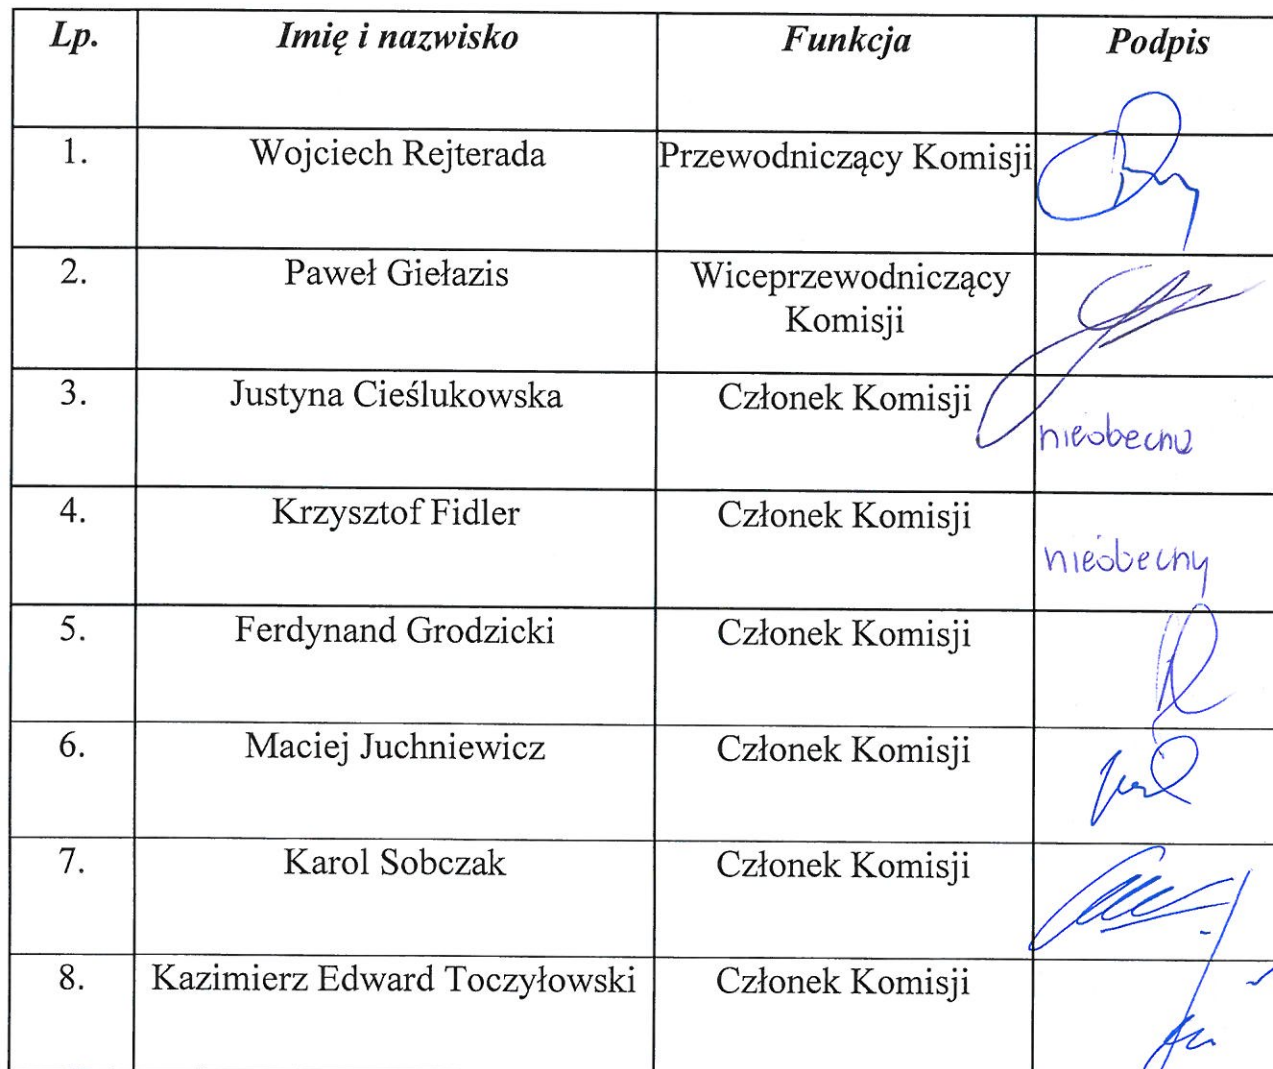 Lp. Imię i nazwisko Funkcja Podpis
1. Wojciech Rejterada Przewodniczący Komisji
2. Paweł Giełazis Wiceprzewodniczący
Komisji
3. Justyna Cieślukowska Członek Komisji
nieobecna
4. Krzysztof Fidler Członek Komisji
nieobecny
5. Ferdynand Grodzicki Członek Komisji
6. Maciej Juchniewicz Członek Komisji
7. Karol Sobczak Członek Komisji
8. Kazimierz Edward Toczyłowski Członek Komisji